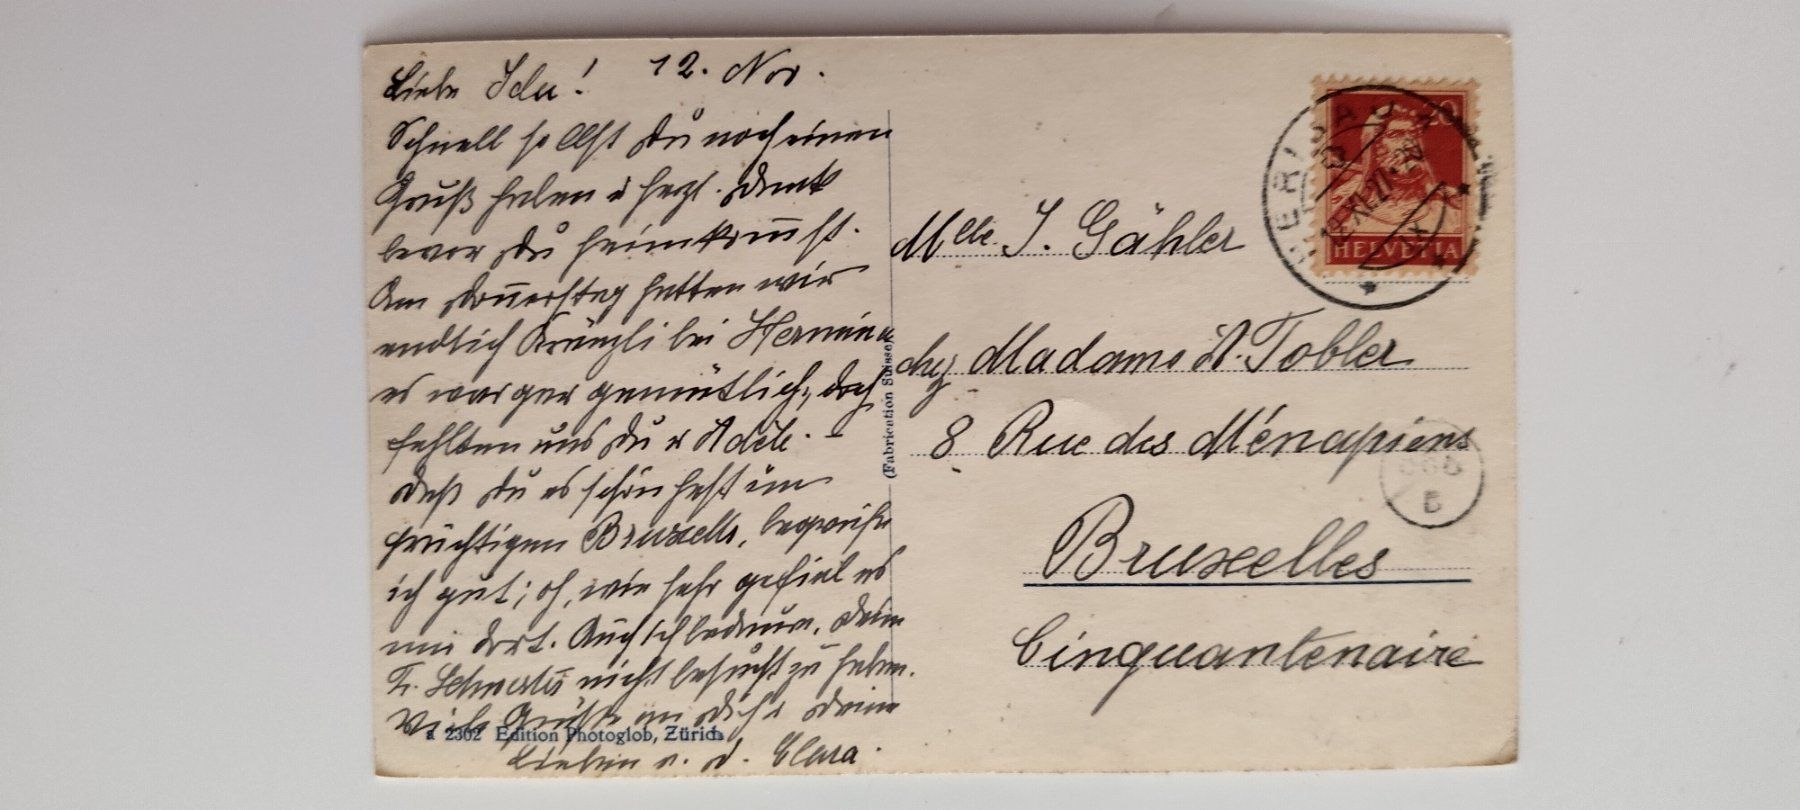 Liebe Ida! 12. Nov.
Schnell sollst Du noch einen
Gruß haben & herzl. Dank
bevor Du heimkom̅st.
Am Don̅erstag hatten wir
endlich Kränzli bei Hermine
es war gar gemütlich, doch
fehlten uns Du & Adele. -
Daß Du es schön hast im
prächtigen Bruxelles, begreife
ich gut; oh, wie sehr gefiel es
mir dort. Auch ich bedaure, Deine
Fr. nicht besucht zu haben.
Viele Grüße an Dich & Deine
Lieben v. d. Clara.
Mlle. I. Gähler
chez Madame A. Tobler
8 Rue des Ménapiens
Bruxelles
Cinquantenaire
HERISAU
12.XI.27
HELVETIA
B
(Fabrication Suisse)
2302 Edition Photoglob, Zürich